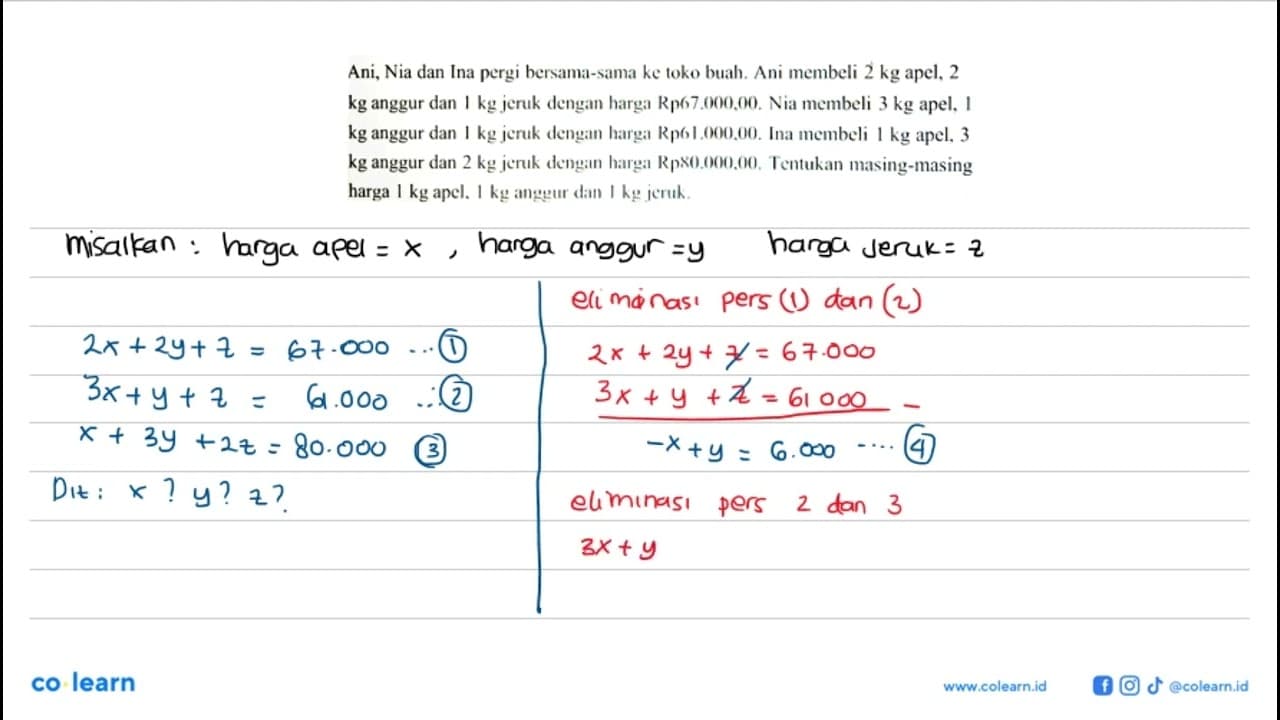 Ani, Nia dan Ina pergi bersama-sama ke toko buah. Ani membeli 2 kg apel, 2
kg anggur dan 1 kg jeruk dengan harga Rp67.000,00. Nia membeli 3 kg apel, 1
kg anggur dan 1 kg jeruk dengan harga Rp61.000,00. Ina membeli 1 kg apel, 3
kg anggur dan 2 kg jeruk dengan harga Rp80.000,00. Tentukan masing-masing
harga 1 kg apel, 1 kg anggur dan 1 kg jeruk.
misalkan : harga apel = x , harga anggur = y harga jeruk = z
2x + 2y + z = 67.000 ... ①
3x + y + z = 61.000 ... ②
x + 3y + 2z = 80.000 ③
Dit : x ? y ? z ?
eliminasi pers (1) dan (2)
2x + 2y + z = 67.000
3x + y + z = 61 000 -
-x + y = 6.000 .... ④
eliminasi pers 2 dan 3
3x + y
co learn
www.colearn.id @colearn.id